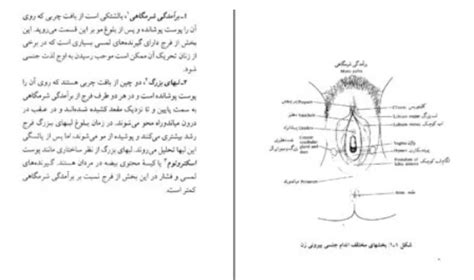 ۱ـ برآمدگی شرمگاهی؛ بالشتکی است از بافت چربی که روی
آن را پوست پوشانده و پس از بلوغ مو بر این قسمت می‌روید. این
بخش از فرج دارای گیرنده‌های لمسی بسیاری است که در برخی
از زنان تحریک آن ممکن است موجب رسیدن به اوج لذت جنسی
شود.
۲ـ لبهای بزرگ؛ دو چین از بافت چربی هستند که روی آن را
پوست پوشانده است و در هر دو طرف از برآمدگی شرمگاهی
به سمت پایین و تا نزدیک مقعد کشیده شده‌اند و در عقب در
درون میاندوراه محو می‌شوند. در زمان بلوغ لبهای بزرگ فرج
رشد بیشتری می‌کنند و پوشیده از مو می‌شوند، اما پس از یائسگی
این لبها تحلیل می‌روند. لبهای بزرگ از نظر ساختاری مانند پوست
اسکروتوم یا کیسهٔ محتوی بیضه در مردان هستند. گیرنده‌های
لمسی و فشار در این بخش از فرج نسبت بر برآمدگی شرمگاهی
کمتر است.
برآمدگی شرمگاهی
Mons pubis
Prepuce
Frenulum
Urethra
Clitoris
کلیتوریس
Labium majus
لب بزرگ
Labium minus
لب کوچک
Vagina
Hymen
Perineum
میاندوراه
Anus
مقعد
شکل ۱ـ۱: بخشهای مختلف اندام جنسی بیرونی زن